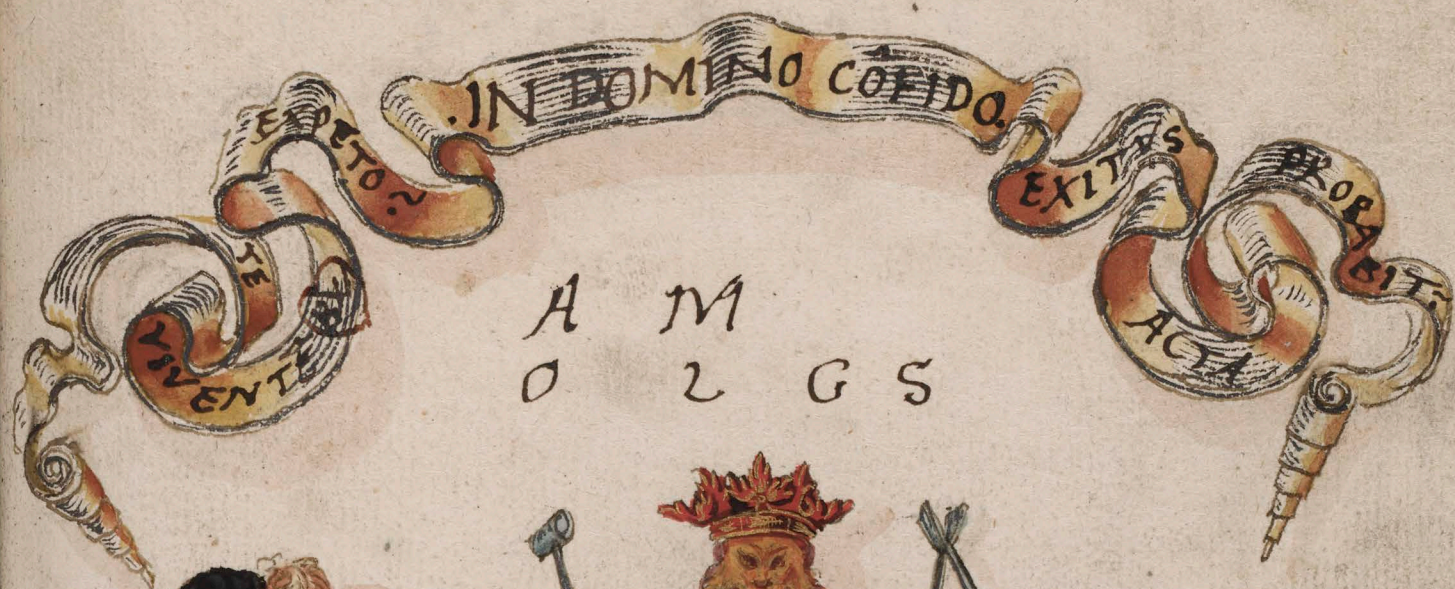 TE
VIVENTE
EXPETO
.IN DOMINO CÔFIDO.
EXITVS
ACTA
PROBABIT
A M
O 2 G S